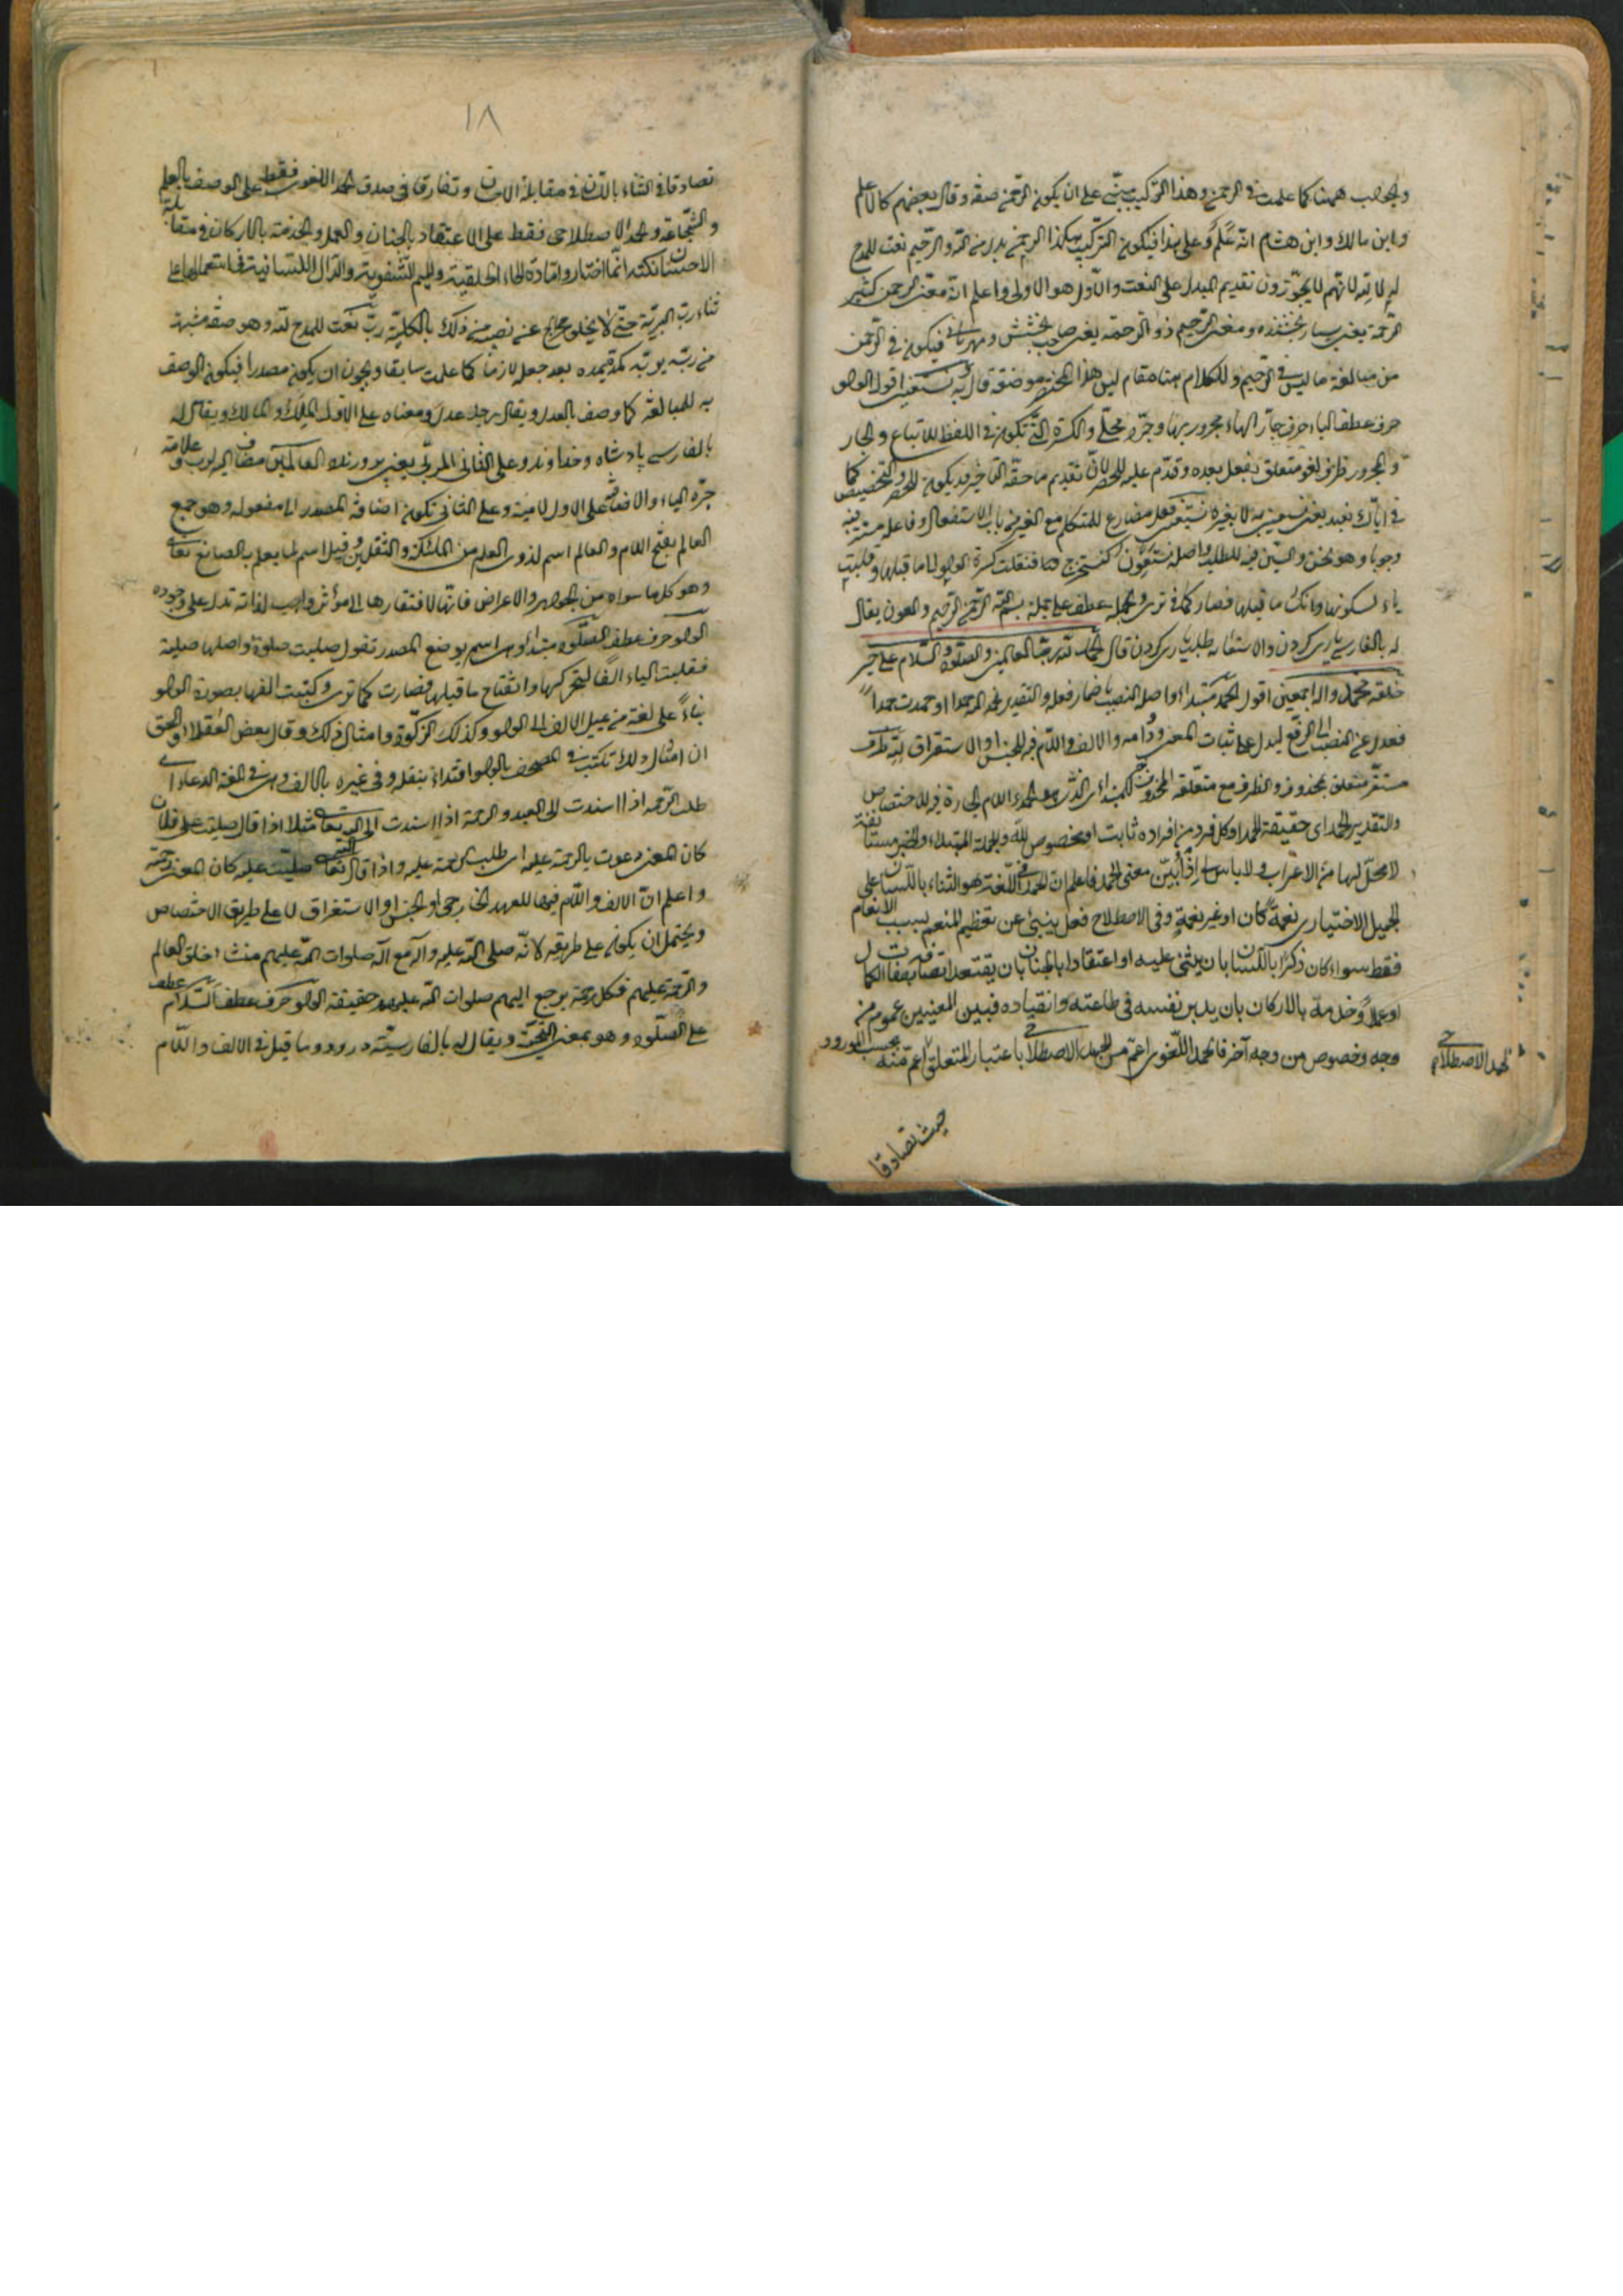 والجواب ههنا كما علمت في الرحمن وهذا التركيب مبنى على ان يكون الرحمن صفة وقال بعضهم كالاعلم
وابن مالك وابن هشام انه علم وعلى هذا فيكون التركيب هكذا الرحمن بدل من الله والرحيم نعت للمدح
له لا لله لانهم لا يجوزون تقديم البدل على النعت والاول هو الاولى واعلم ان معنى الرحمن كثير
الرحمة يعنى بسيار بخشنده ومعنى الرحيم ذو الرحمة يعنى صاحب بخشش ومهربانى فيكون في الرحمن
من مبالغة ما ليس في الرحيم وللكلام هنا مقام ليس هذا المختصر موضعه قال وبه نستعين اقول الواو
حرف عطف الباء حرف جار الهاء مجرور بها وجره محلى والكسرة التى تكون في اللفظ للاتباع والجار
والمجرور ظرف لغو متعلق بفعل بعده وقدم عليه للحصر لان تقديم ما حقه التاخير قد يكون للحصر والتخصيص كما
في اياك نعبد يعنى نستعين به لا بغيره نستعين فعل مضارع للمتكلم مع الغير من باب الاستفعال وفاعله مستتر فيه
وجوبا وهو نحن والسين فيه للطلب واصله نستعون كنستخرج فنقلت كسرة الواو الى ما قبلها وقلبت
ياء لسكونها وانكسار ما قبلها فصار كما ترى والجملة عطف على جملة بسم الله الرحمن الرحيم والعون يقال
له بالفارسى يارى كردن والاستعانة طلب يارى كردن قال الحمد لله رب العالمين والصلوة والسلام على خير
خلقه محمد واله اجمعين اقول الحمد مبتداء واصله النصب باضمار فعله والتقدير نحمد الله حمدا او حمدت حمدا
فعدل عن النصب الى الرفع ليدل على ثبات المعنى ودوامه والالف واللام فيه للجنس او الاستغراق لله ظرف
مستقر متعلق بمحذوف والظرف مع متعلقه المحذوف خبر للمبتداء الذى هو الحمد واللام الجارة فيه للاختصاص
والتقدير الحمد اى حقيقة الحمد او كل فرد من افراده ثابت او مخصوص لله والجملة المبتداء والخبر مستانفة
لا محل لها من الاعراب ولا باس اذا بين معنى الحمد فاعلم ان الحمد في اللغة هو الثناء باللسان على
الجميل الاختيارى نعمة كان او غير نعمة وفى الاصطلاح فعل ينبئ عن تعظيم المنعم بسبب الانعام
فقط سواء كان ذكرا باللسان بان يثنى عليه او اعتقادا بالجنان بان يعتقد اتصافه بصفات الكمال
او عملا وخدمة بالاركان بان يدير نفسه في طاعته وانقياده فبين المعنيين عموم من
وجه وخصوص من وجه آخر فالحمد اللغوى اعم من الحمد الاصطلاحى باعتبار المتعلق اعم منه بحسب المورود
الحمد الاصطلاحى
حيث تصادقا
١٨
تصادقا في الثناء باللسان في مقابلة الاحسان وتفارقا في صدق الحمد اللغوى فقط على الوصف بالعلم
والشجاعة والحمد الاصطلاحى فقط على الاعتقاد بالجنان والعمل والخدمة بالاركان في مقابلة
الاحسان نكتة انما اختار مادة الحاء الحلقية والميم الشفوية والدال اللسانية في استعمالها على
ثناء رب البرية حتى لا يخلو مخرج عن نصيبه من ذلك بالكلية رب نعت للمدح لله وهو صفة مشبهة
من ربه يربه بعد جعله لازما كما علمت سابقا ويجوز ان يكون مصدرا فيكون الوصف
به للمبالغة كما وصف بالعدل ويقال رجل عدل ومعناه على الاول الملك والمالك ويقال له
بالفارسى پادشاه وخداوند وعلى الثانى المربى يعنى پرورنده العالمين مضاف اليه لرب وعلامة
جره الياء والاضافة على الاول لامية وعلى الثانى تكون اضافة المصدر الى مفعوله وهو جمع
العالم بفتح اللام والعالم اسم لذوى العلم من الملائكة والثقلين وقيل اسم لما يعلم به الصانع تعالى
وهو كل ما سواه من الجواهر والاعراض فانها لافتقارها الى مؤثر واجب لذاته تدل على وجوده
الواو حرف عطف الصلوة مبتداء وهى اسم يوضع المصدر تقول صليت صلوة واصلها صلية
فقلبت الياء الفا لتحركها وانفتاح ما قبلها فصارت كما ترى وكتبت الفها بصورة الواو
بناء على لغة من يميل الالف الى الواو وكذلك الزكوة وامثال ذلك وقال بعض العقلاء والحق
ان امثال ذلك تكتب في المصحف بالواو اقتداء بنقله وفى غيره بالالف وهى في اللغة الدعاء اى
طلب الرحمة اذا اسندت الى العبد والرحمة اذا اسندت الى الله تعالى مثلا اذا قال صليت على فلان
كان المعنى دعوت بالرحمة عليه اى طلبت الرحمة عليه واذا قال الله تعالى صليت عليه كان المعنى رحمته
واعلم ان الالف واللام فيها للعهد الخارجى او الجنس او الاستغراق لا على طريق الاختصاص
ويحتمل ان يكون على طريقه لانه صلى الله عليه وآله مع آله صلوات الله عليهم منشاء خلق العالم
والرحمة عليهم فكل رحمة يرجع اليهم صلوات الله عليهم حقيقة الواو حرف عطف السلام عطف
على الصلوة وهو بمعنى التحية ويقال له بالفارسية درود وما قيل في الالف واللام